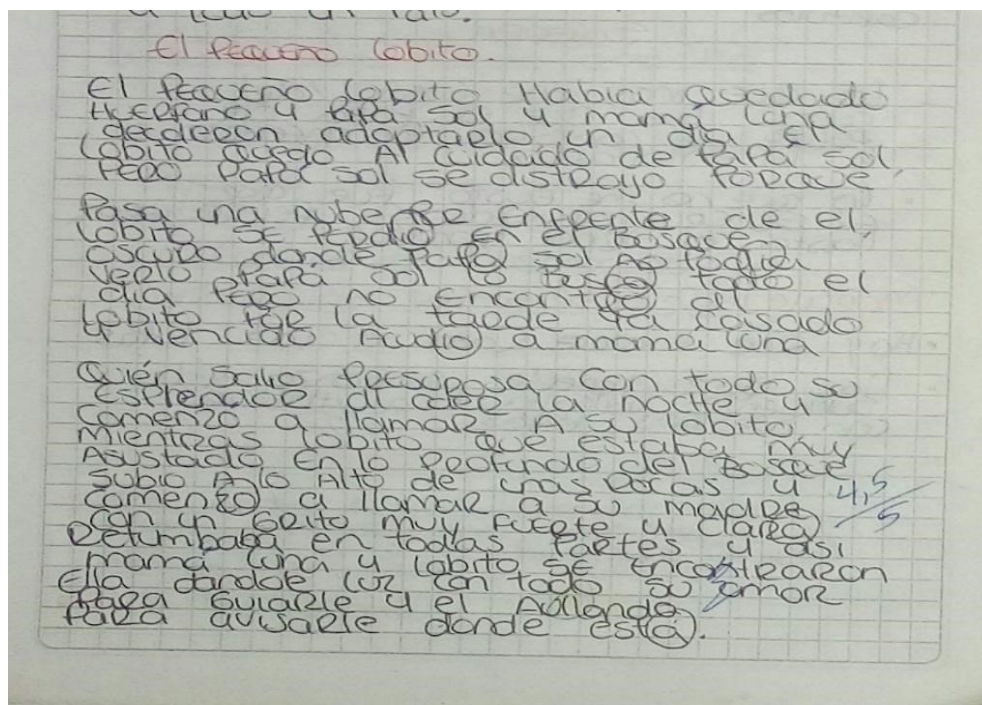 El PEQUEÑO lobito.
El PEQUEÑO lobito Habia quedado
HUERfano y PAPá Sol y mamá luna
decdieron adoptarlo un dia El
lobito quedo Al cuidado de PAPá Sol
PERO PAPá Sol se distRayo PORque
Pasa una nube enfrente de el,
lobito SE PERdio En el Bosque
oscuRo donde PaPá Sol no Podia
verlo PaPá Sol lo Busco todo el
dia PERO no Encontro al
lobito PoR la taRde Ya casado
y vencido Acudio a mama luna
Quién Salio PResurosa con todo su
EsPlendoR al caeR la nocHe y
Comenzo a llamaR A su lobito
MientRas lobito que estaba muy
Asustado En lo PRofundo del Bosque
SuBio A lo Alto de unas Rocas y
Comenzo a llamaR a su madRe
con un GRito muy fueRte y claRo
Retumbaba en todas PaRtes y asi
mamá luna y lobito SE EncontRaRon
Ella dandole luz con todo su amoR
PaRa GuiaRle y el Aullando
PaRa avisaRle donde está.
4,5/5